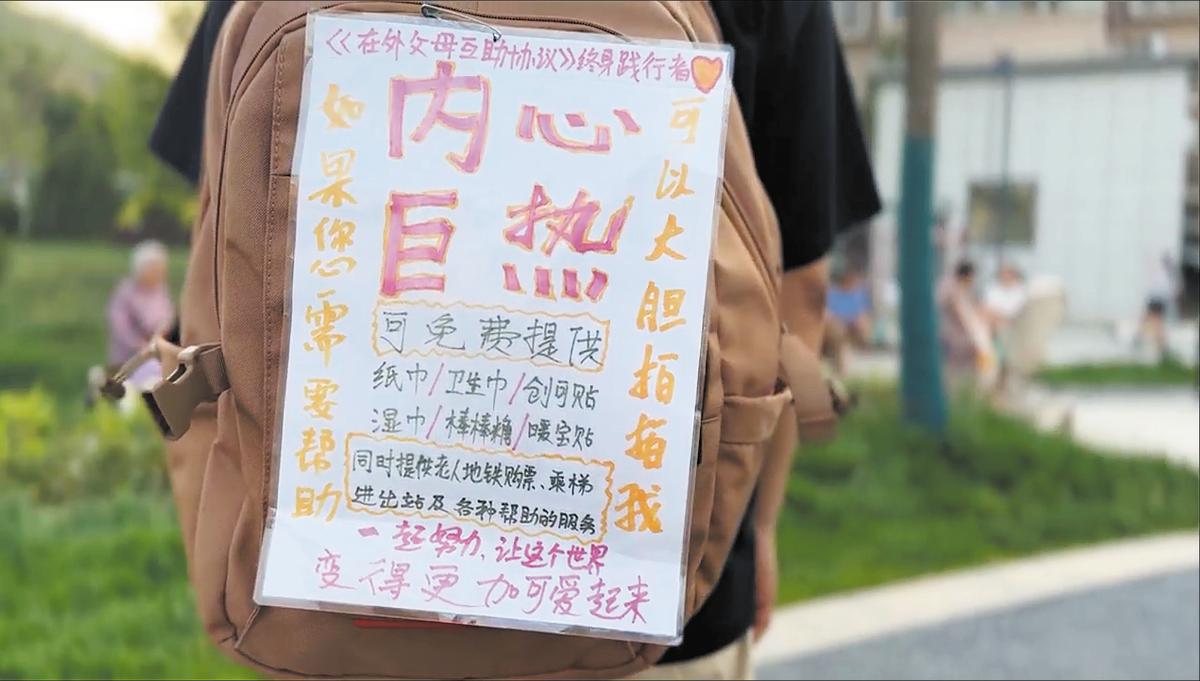 《《在外父母互助协议》》终身践行者
如果您需要帮助
内心
巨热
可免费提供
纸巾/卫生巾/创可贴
湿巾/棒棒糖/暖宝贴
同时提供老人地铁购票、乘梯
进出站及各种帮助的服务
可以大胆拍拍我
一起努力、让这个世界
变得更加可爱起来